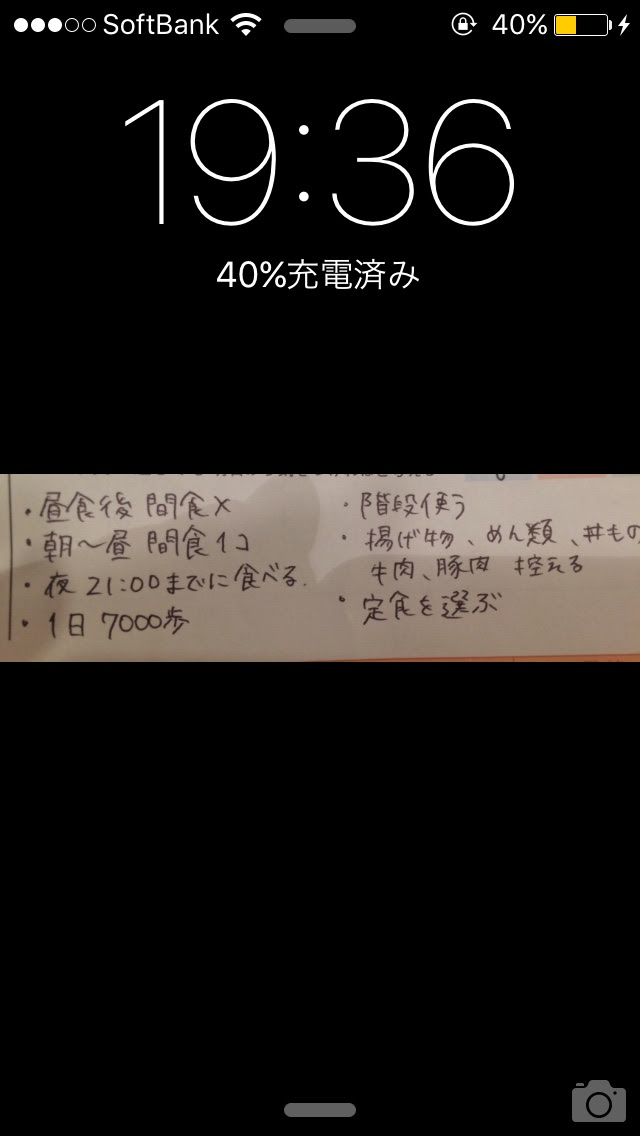 SoftBank 40%
19:36
40%充電済み
・昼食後 間食×
・朝～昼 間食1コ
・夜 21:00までに食べる.
・1日 7000歩
・階段使う
・揚げ物、めん類、丼もの
牛肉、豚肉 控える
・定食を選ぶ